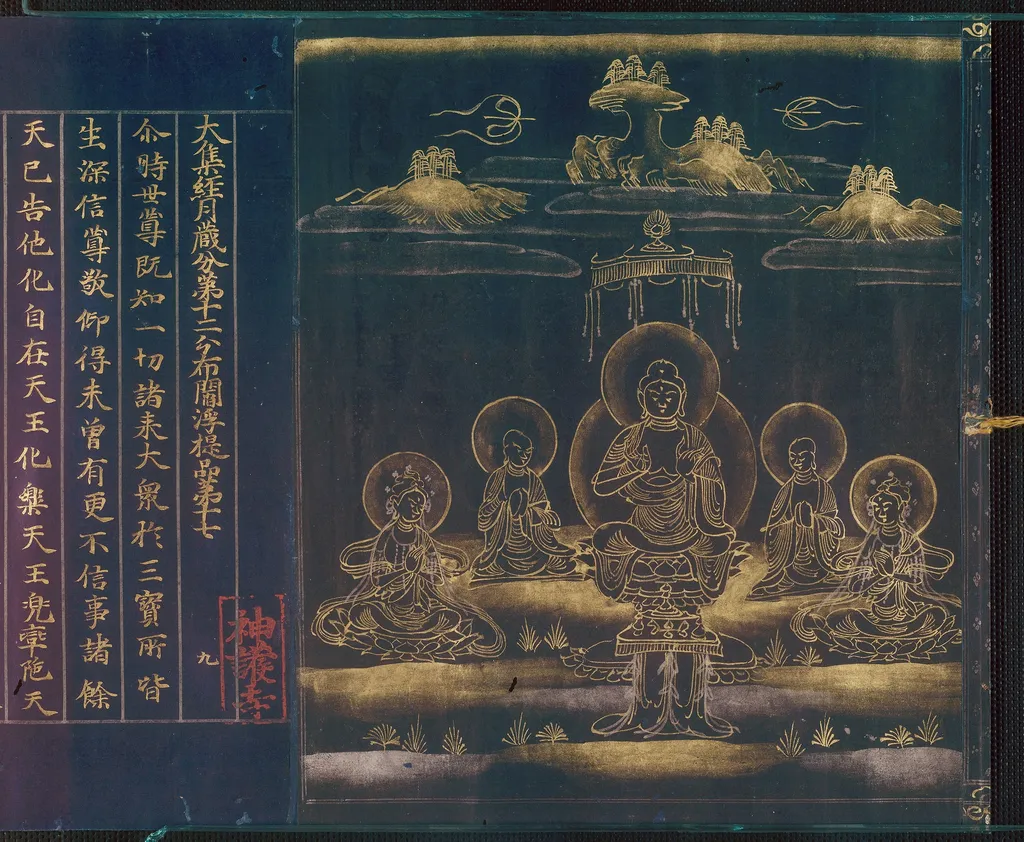 大集経月蔵分第十二分布閻浮提品第十七
九
尒時世尊既知一切諸来大衆於三寶所皆
生深信尊敬仰得未曾有更不信事諸餘
天已告他化自在天王化樂天王兜率陁天
神護寺